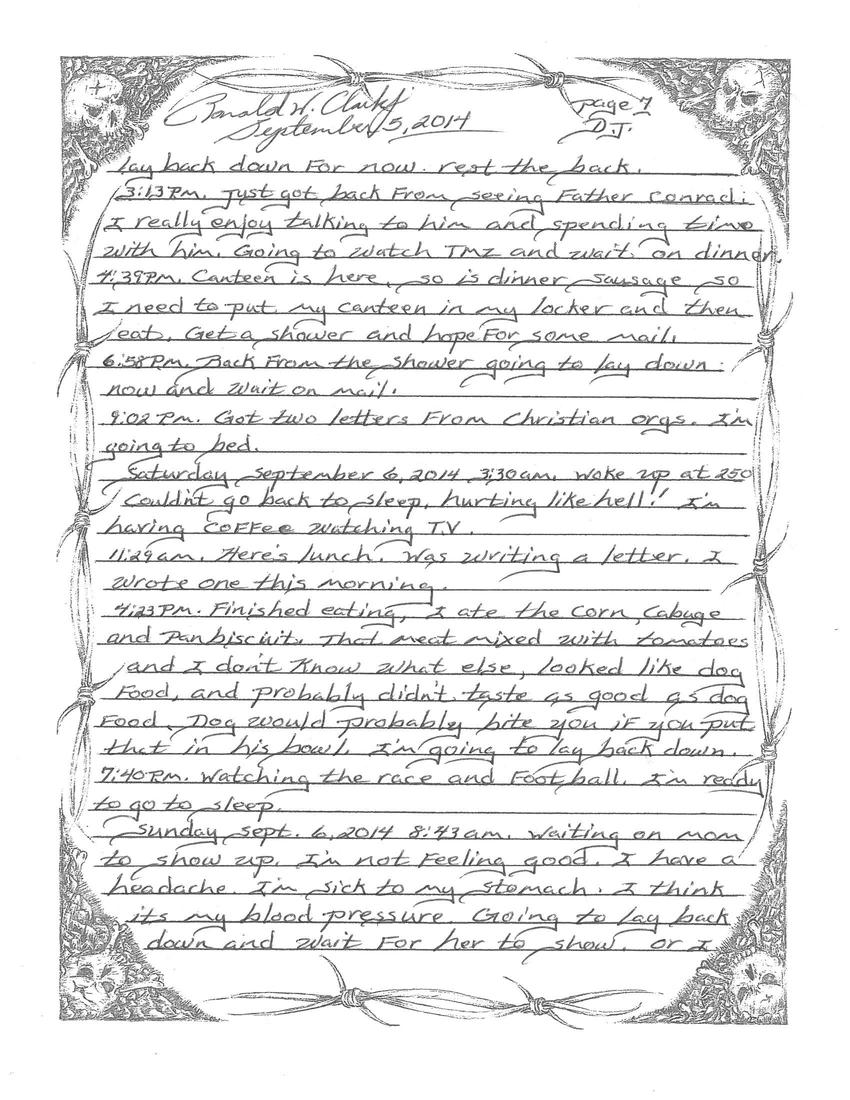 Ronald W. Clark Jr page 7
September 5, 2014 D.J.
lay back down For now. rest the back.
3:13 Pm. Just got back From seeing Father Conrad.
I really enjoy talking to him and spending time
with him. Going to watch TMZ and wait on dinner.
4:39 Pm. Canteen is here, so is dinner sausage so
I need to put my canteen in my locker and then
eat. Get a shower and hope For some mail.
6:58 Pm. Back From the shower going to lay down
now and wait on mail.
9:02 Pm. Got two letters From Christian orgs. I'm
going to bed.
Saturday September 6, 2014 3:30 am. Woke up at 250
Couldn't go back to sleep, hurting like hell! I'm
having CoFFee watching T.V.
11:29 am. Here's lunch. Was writing a letter. I
wrote one this morning.
4:23 Pm. Finished eating, I ate the corn, Cabuge
and Pan biscuit. That meat mixed with tomatoes
and I don't Know what else, looked like dog
Food, and probably didn't taste as good as dog
Food. Dog would probably bite you iF you put
that in his bowl. I'm going to lay back down.
7:40 Pm. Watching the race and Football. I'm ready
to go to sleep.
Sunday Sept. 6, 2014 8:43 am. Waiting on mom
to show up. I'm not Feeling good. I have a
headache. I'm sick to my stomach. I think
its my blood pressure. Going to lay back
down and wait For her to show. or I